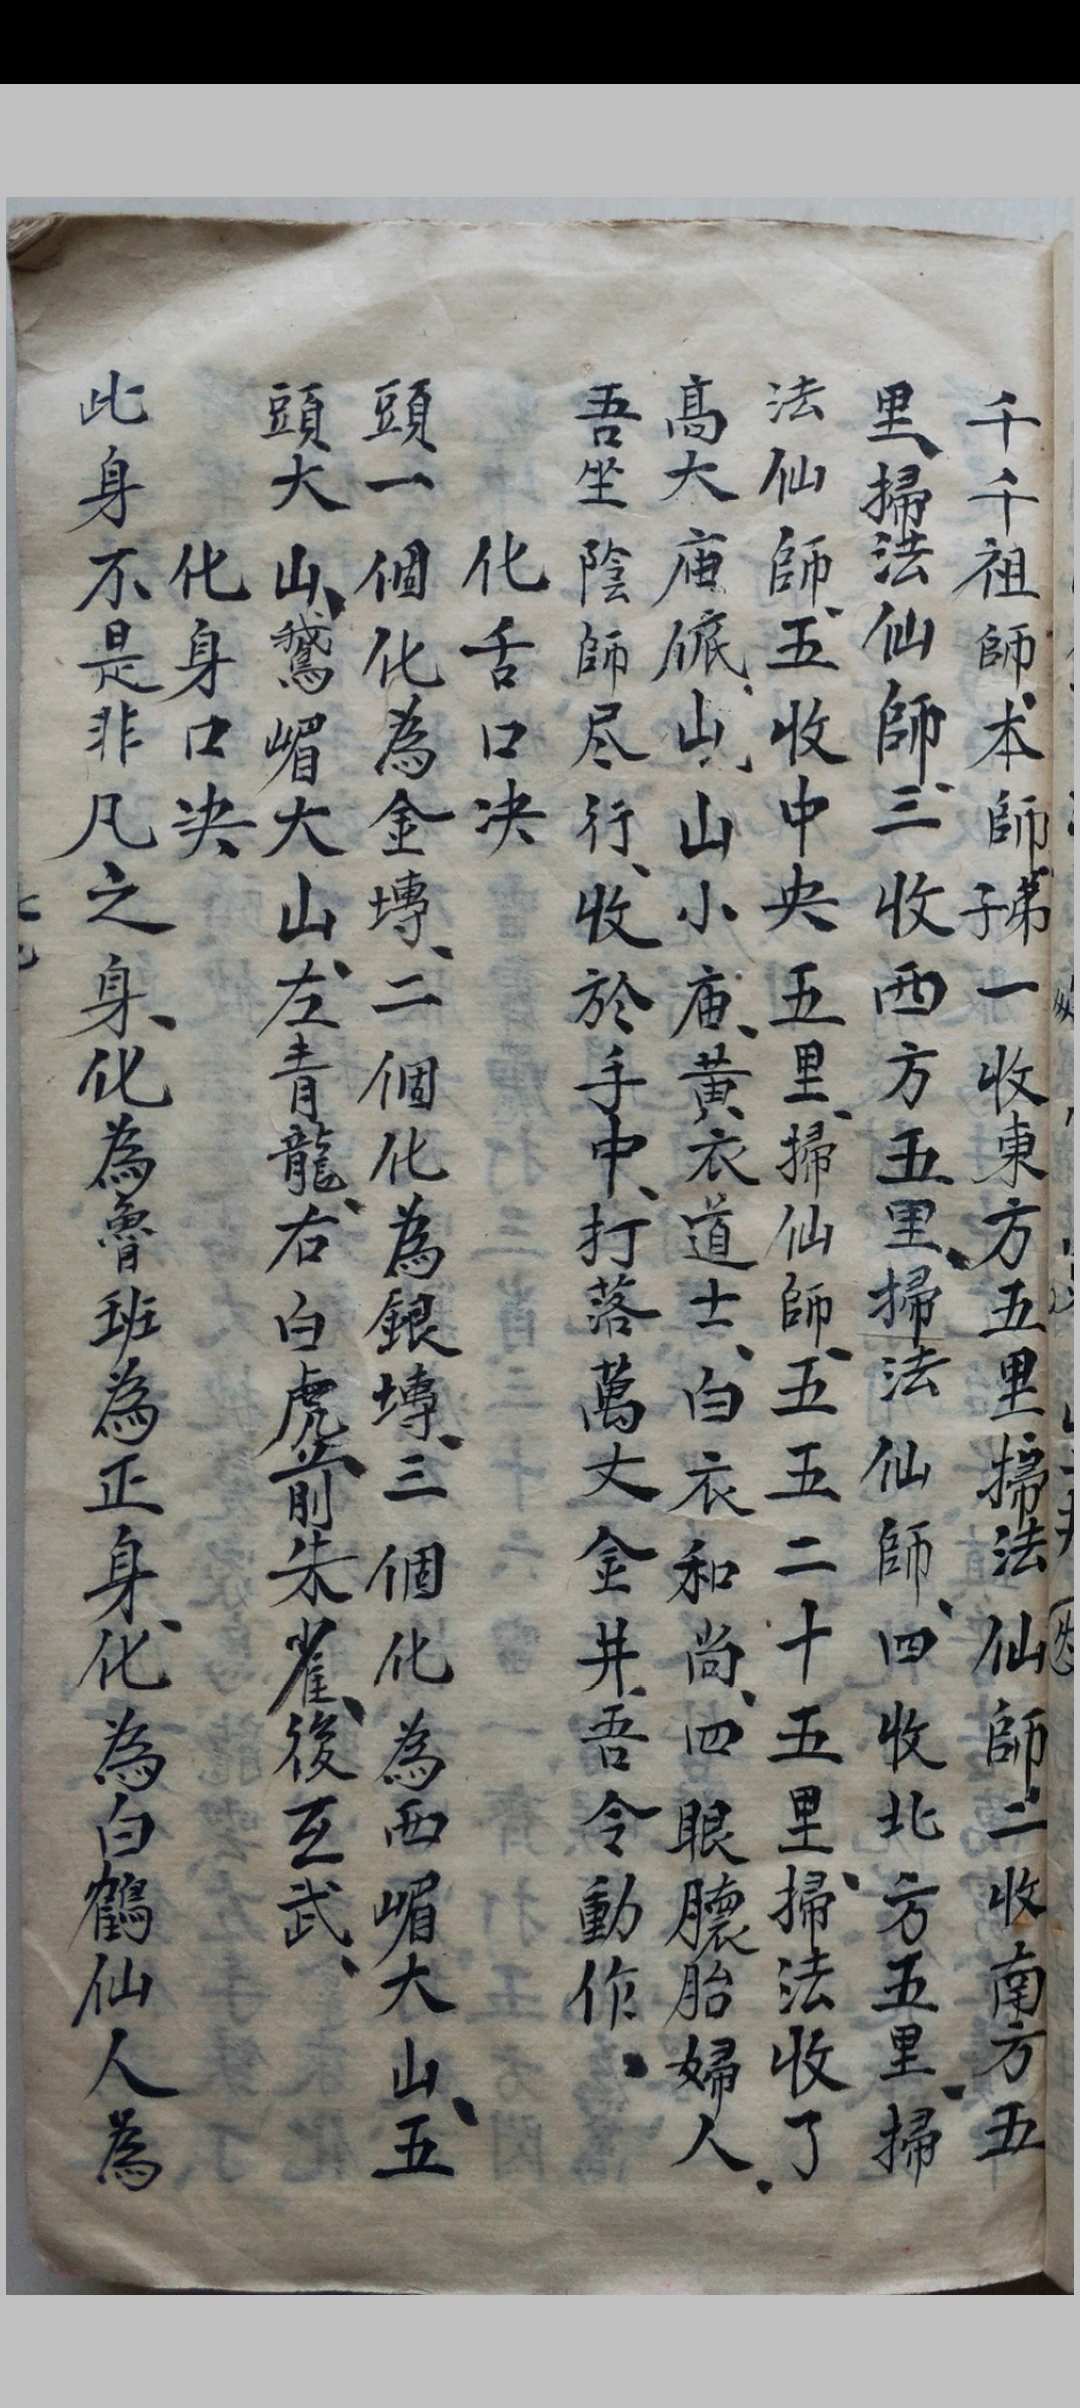 千千祖師、本師、弟子一收東方五里掃法仙師、二收南方五
里、掃法仙師、三收西方五里、掃法仙師、四收北方五里、掃
法仙師、五收中央五里、掃仙師、五五二十五里、掃法收了
高大庙、山、山小庙、黃衣道士、白衣和尚、四眼胎婦人、
吾坐陰師尽行、收於手中、打落萬丈金井、吾令動作、
化舌口决
頭一個化為金塼、二個化為銀塼、三個化為西嵋大山、五
頭大山、鵞嵋大山、左青龍、右白虎前朱雀、後玄武、
化身口决、
此身不是非凡之身、化為魯班為正身、化為白鶴仙人為